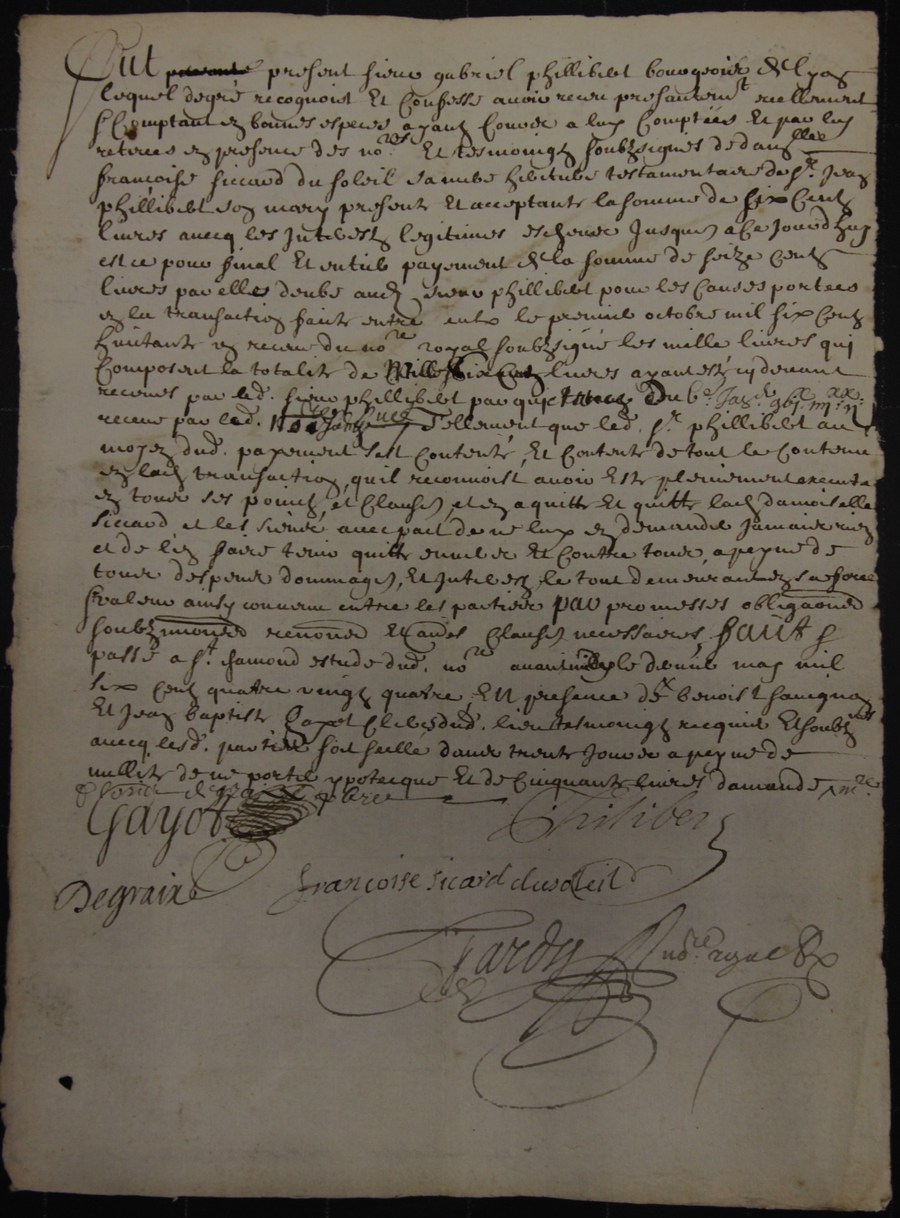 Fut present sieur gabriel phillibert bourgeois de lyon
lequel de gré recognoist Et Confesse avoir receu presantemt reellement
& Comptant en bonnes especes ayant Cource a luy Comptées Et par luy
retirées en presence des nores Et tesmoingz soubzsignés de damlle
françoise siccard du soleil sa mere heritiere testamentaire de sr Jean
phillibert son mary presente Et acceptante la somme de six Centz
livres avecq les Jnterestz legitimes escheuz Jusques a Ce Jourdhuy
est ce pour final Et entier payement de la somme de seize Centz
livres par elle deube aud. sieur phillibert pour les Causes portees
en la transaction faite entre eulx le premier octobre mil six Centz
huitante un receue du nore royal soubzsigné les mille livres qui
Composent la totalité de Mille six Centz livres ayant esté cy devant
receues par led. sieur phillibert par quittance du
receue par led. Tellement que led. sr phillibert au
moyen dud. payement s'est Contenté, Et Contente de tout le Contenu
en lad. transaction, qu'il reconnoist avoir Esté pleinement executée
en tous ses pointz, et Clauses et en a quitté Et quitte lad. damoiselle
siccard et les siens avec pact de ne luy en demander Jamais rien
et de l'en faire tenir quitte envers Et Contre tous, a peyne de
tous despens dommages, Et Jnterestz, le tout demeurant en sa force
& valeur ainsy convenu entre les parties par promesses obligaons
soubzmions renons Et aues Clauses necessaires faict &
passé a st chamond estude dud. nore avant midy le denier may mil
six Centz quatre vingtz quatre, En presence de sr benoist
Et Jean baptiste Gayot Clercs dud. lieu tesmoingz requis Et soubznés
avecq lesd. parties soit scellé dans trente Jours a peyne de
nullité de ne porter ypotecque Et de Cinquante livres damande
Gayot
Philibert
Degraix
françoise sicard du soleil
Tardy nore royal